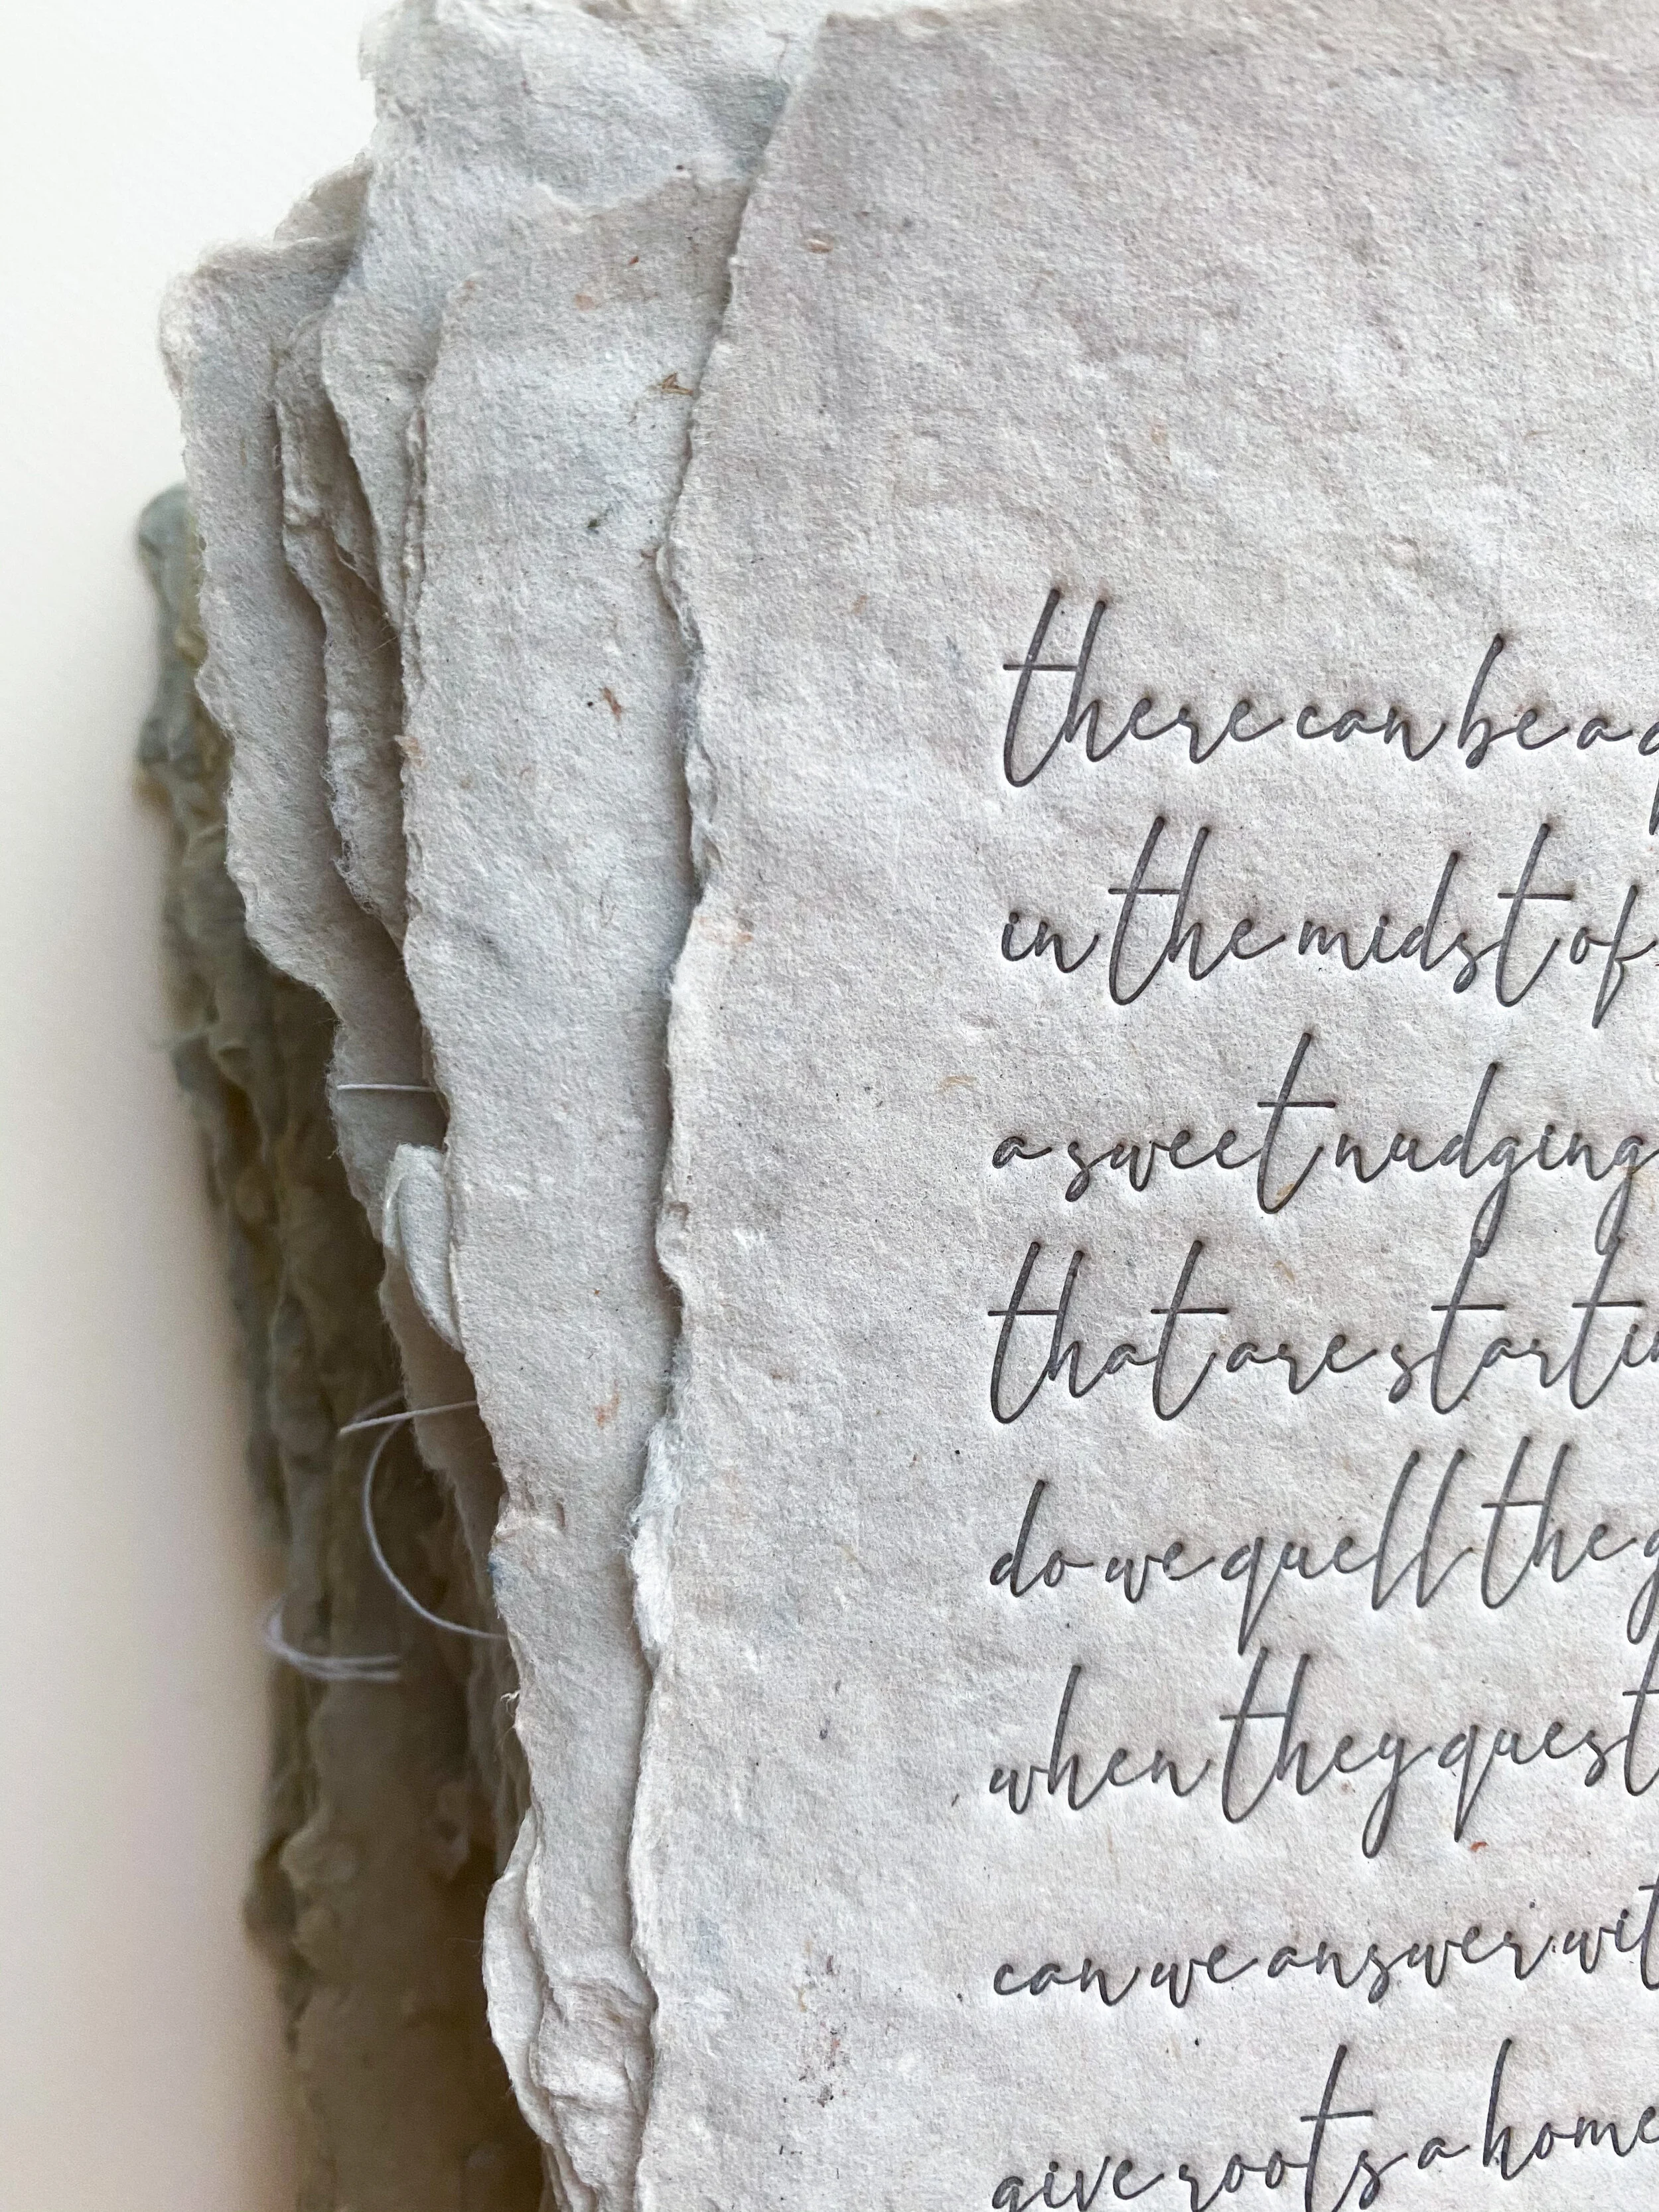 there can be a
in the midst of
a sweet nudging
that are
do we quell the
when they
can we answer
give roots a home